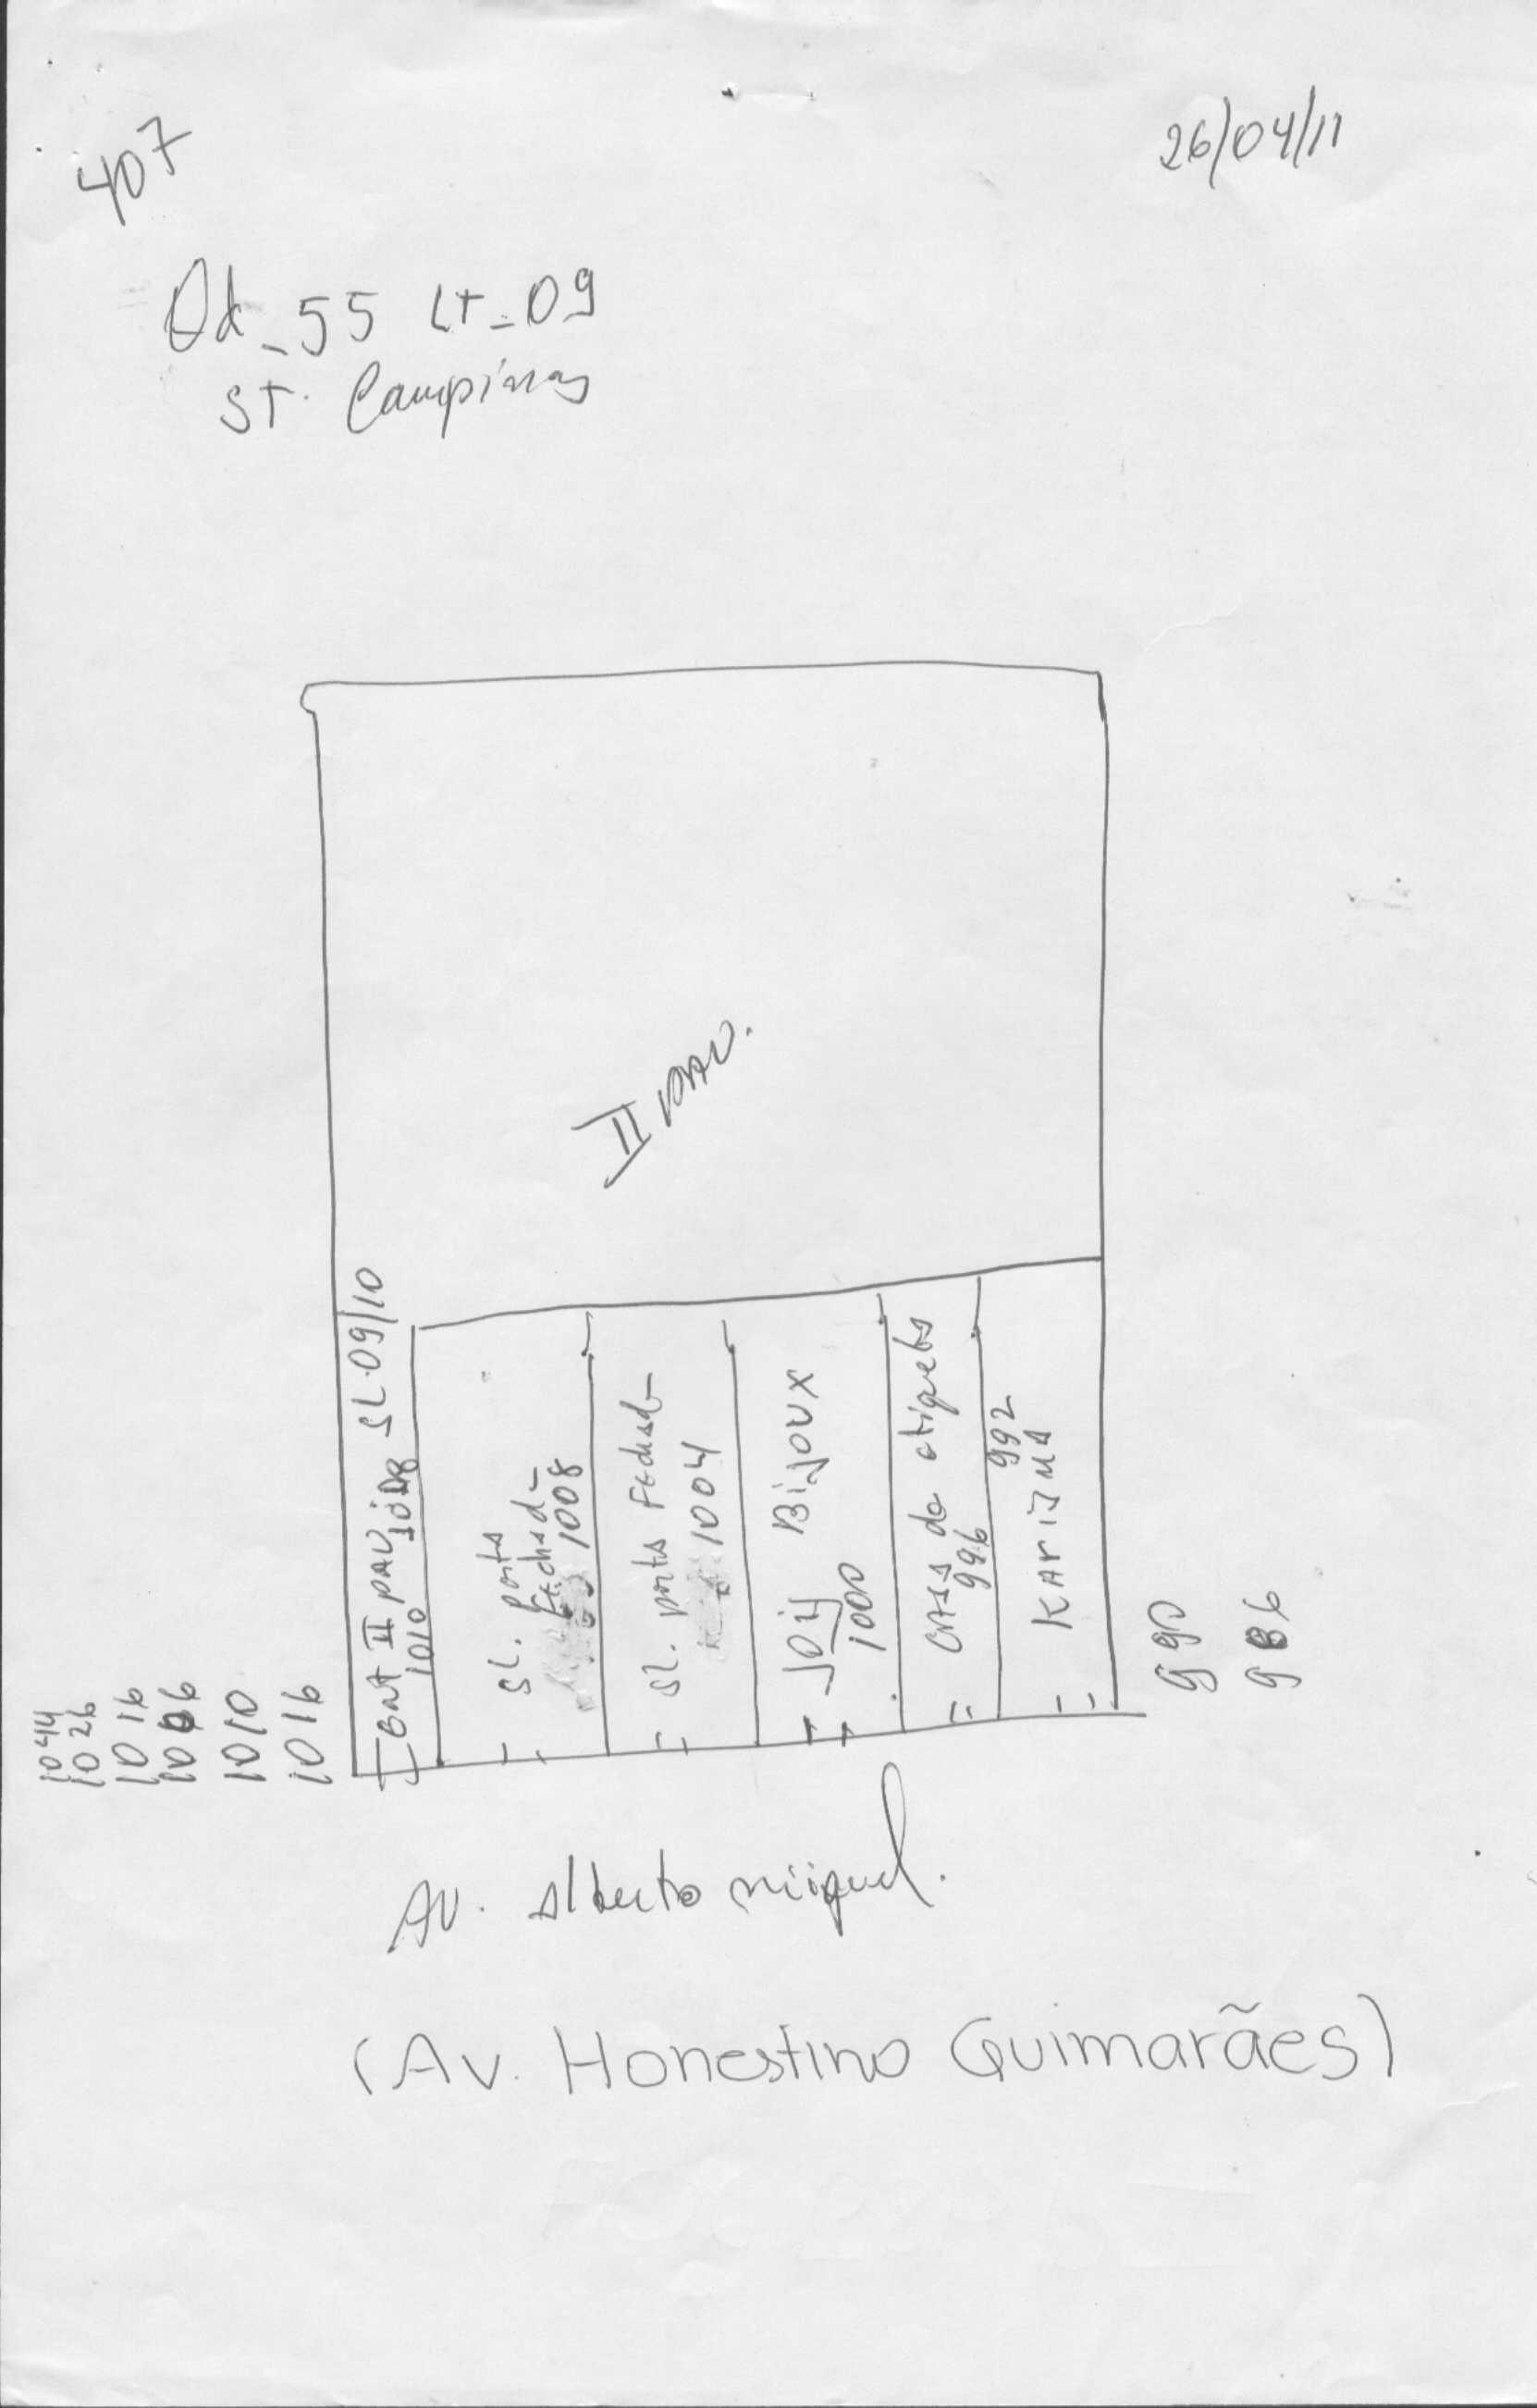 407
26/04/11
Qd_55 LT_09
ST. Campinas
II PAV.
ENT II PAV SL.09/10
1010
SL. porta
Fechada
1008
SL. porta Fechada
1004
Joiy BiJOUX
1000
CASA da etiqueta
996
992
KARISMA
1044
1026
1016
1006
1010
1016
990
986
AV. Alberto miguel.
(Av. Honestino Guimarães)